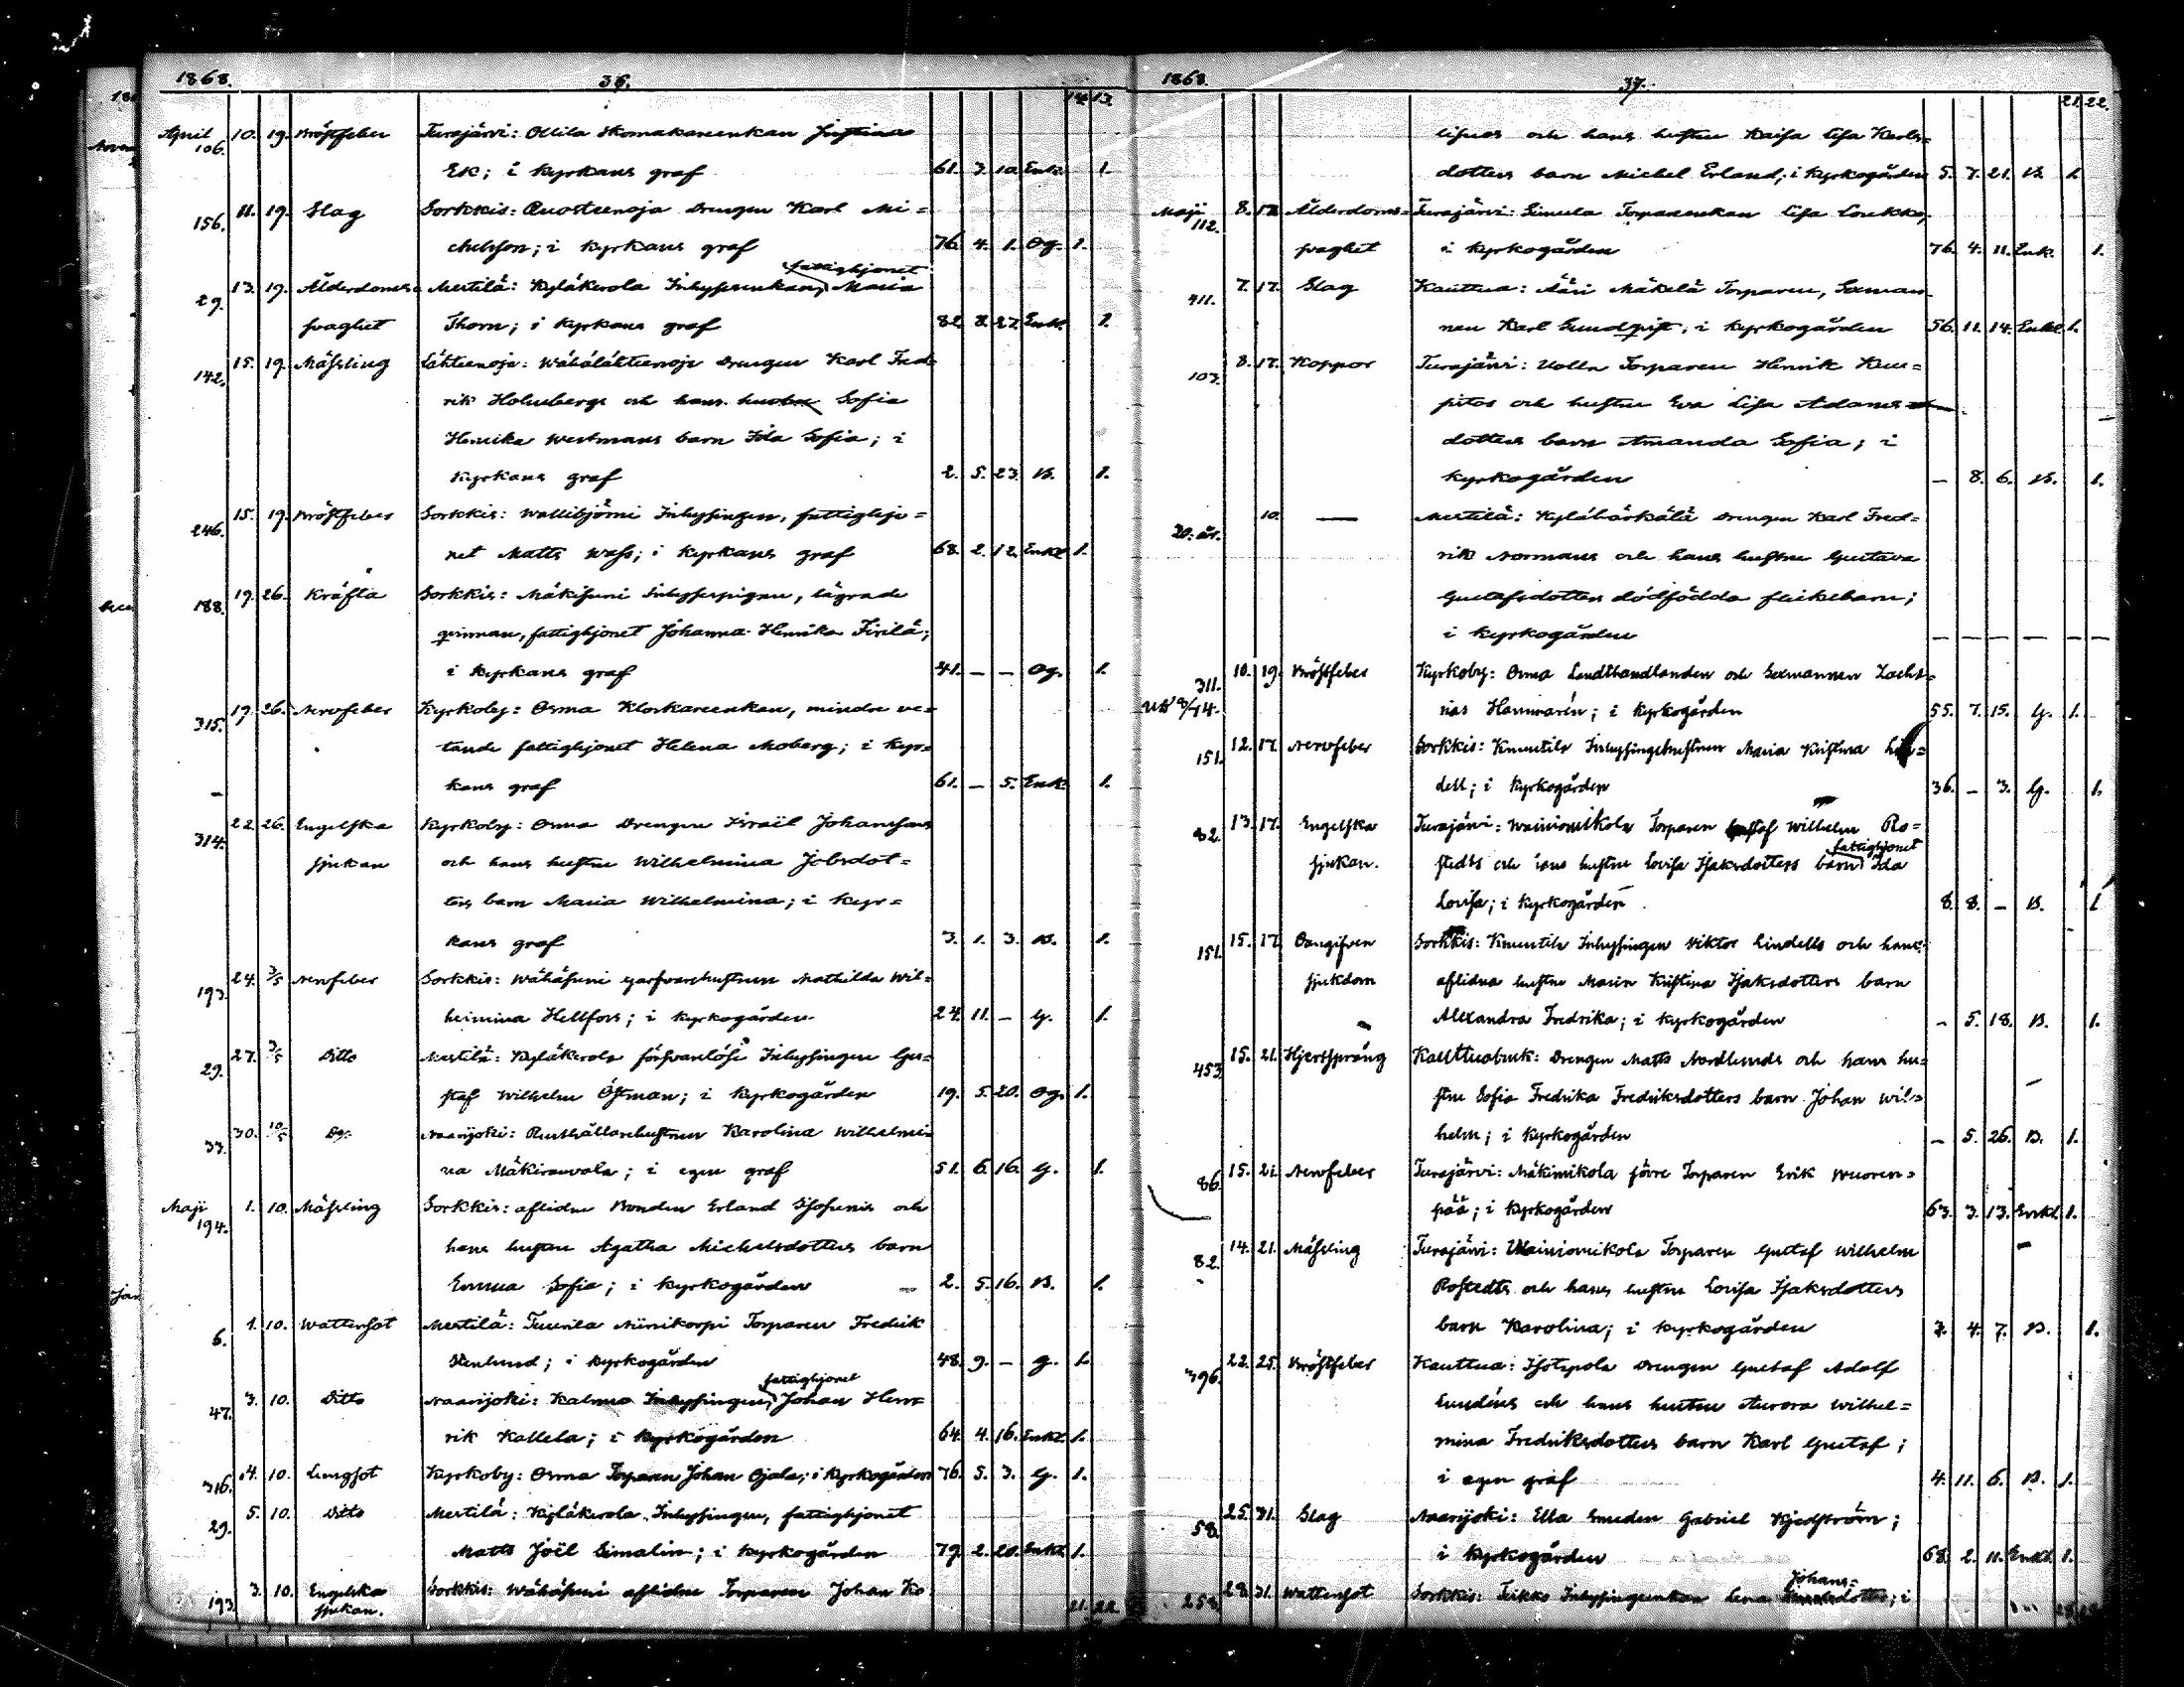 1868. 36.
14. 13.
April 106. 10. 19. Bröstfeber Turajärvi: Ollila Skomakareenkan Justina
Ek; i kyrkans graf 61. 3. 10. Enk. 1.
156. 11. 19. Slag Sorkkis: Ruosteenoja Drengen Karl Mi=
chelsson; i kyrkans graf 76. 4. 1. Og. 1.
fattighjonet
29. 13. 19. Ålderdoms= Mertilä: Kyläkerola Inhysesenkan, Maria
svaghet Thorn; i kyrkans graf 82. 8. 27. Enk. 1.
142. 15. 19. Mässling Lähteenoja: Wähälähteenoja Drengen Karl Fred
rik Holmbergs och hans hustru Sofia
Henrika Westmans barn Ida Sofia; i
kyrkans graf 2. 5. 23. B. 1.
246. 15. 19. Bröstfeber Sorkkis: Wallibjörni Inhysingen, fattighjo=
net Matts Wass; i kyrkans graf 68. 2. 12. Enkl. 1.
188. 19. 26. Kräfta Sorkkis: Mäkisuni Inhysespigan, lägrade
qvinnan, fattighjonet Johanna Henrika Firilä;
i kyrkans graf 41. — — Og. 1.
315. 19. 26. Nervfeber Kyrkoby: Orma Klockareenkan, mindre ve=
tande fattighjonet Helena Moberg; i kyr=
kans graf 61. — 5. Enk. 1.
314. 22. 26. Engelska Kyrkoby: Orma Drengen Israël Johanssons
sjukan och hans hustru Wilhelmina Jobsdot=
ters barn Maria Wilhelmina; i kyr=
kans graf 3. 1. 3. B. 1.
193. 24. 3/5 Nervfeber Sorkkis: Wähäsuni Garfvarehustrun Mathilda Wil=
helmina Hellfors; i kyrkogården 24. 11. — G. 1.
29. 27. 3/5 Ditto Mertilä: Kyläkerola försvarslöse Inhysingen Gu=
staf Wilhelm Östman; i kyrkogården 19. 5. 20. Og. 1.
33. 30. 10/5 Do. Naarijoki: Rusthållarehustrun Karolina Wilhelmi
na Mäkirauvola; i egen graf 51. 6. 16. G. 1.
Maji 194. 1. 10. Mässling Sorkkis: aflidne Bonden Erland Isosunis och
hans hustru Agatha Michelsdotters barn
Emma Sofia; i kyrkogården 2. 5. 16. B. 1.
6. 1. 10. Wattensot Mertilä: Tuurila Niinikorpi Torparen Fredrik
Stenlund; i kyrkogården 48. 9. — G. 1.
fattighjonet
47. 3. 10. Ditto Naarijoki: Kalmu Inhysingen, Johan Hen=
rik Kallela; i kyrkogården 64. 4. 16. Enkl. 1.
316. 4. 10. Lungsot Kyrkoby: Orma Torparen Johan Ojala; i kyrkogården 76. 5. 3. G. 1.
29. 5. 10. Ditto Mertilä: Kyläkerola Inhysingen, fattighjonet
Matts Joël Simalin; i kyrkogården 79. 2. 20. Enkl. 1.
193. 3. 10. Engelska Sorkkis: Wähäsuni aflidne Torparen Johan Ko
sjukan. 21. 22.
1868. 37.
21. 22.
lisuos och hans hustru Kaisa Lisa Karls=
dotters barn Michel Erland; i kyrkogården 5. 7. 21. B. 1.
Maji 112. 8. 17. Ålderdoms= Turajärvi: Simula Torpareenkan Lisa Loukko,
svaghet i kyrkogården 76. 4. 11. Enk. 1.
411. 7. 17. Slag Kauttua: Ääri Mäkelä Torparen, Sexman
nen Karl Sundqvist; i kyrkogården 56. 11. 14. Enkl. 1.
103. 8. 17. Koppor Turajärvi: Uolla Torparen Henrik Kau=
pitos och hustru Eva Lisa Adams
dotters barn Amanda Sofia; i
kyrkogården — 8. 6. B. 1.
20. år. 10. — Mertilä: Kylähärkälä Drengen Karl Fred=
rik Normans och hans hustru Gustava
Gustafsdotters dödfödda flickebarn;
i kyrkogården — — — — — —
311. 10. 19. Bröstfeber Kyrkoby: Orma Landthandlanden och Sexmannen Zacha=
rias Hammarén; i kyrkogården 55. 7. 15. G. 1.
151. 12. 17. Nervfeber Sorkkis: Knuutila Inhysingehustrun Maria Kristina Lin=
dell; i kyrkogården 36. — 3. G. 1.
82. 13. 17. Engelska Turajärvi: Wainiomikola Torparen Gustaf Wilhelm Ro=
fattighjonet
sjukan. stedts och hans hustru Lovisa Isaksdotters barn Ida
Lovisa; i kyrkogården 8. 8. — B. 1.
151. 15. 17. Oangifven Sorkkis: Knuutila Inhysingen Viktor Lindells och hans
sjukdom aflidna hustru Maria Kristina Isaksdotters barn
Alexandra Fredrika; i kyrkogården — 5. 18. B. 1.
453. 15. 21. Hjertsprång Kauttuabruk: Drengen Matts Nordlunds och hans hu=
stru Sofia Fredrika Fredriksdotters barn Johan Wil=
helm; i kyrkogården — 5. 26. B. 1.
86. 15. 21. Nervfeber Turajärvi: Mäkimikola förre Torparen Erik Wuoren=
pää; i kyrkogården 63. 3. 13. Enkl. 1.
82. 14. 21. Mässling Turajärvi: Wainiomikola Torparen Gustaf Wilhelm
Rostedts och hans hustru Lovisa Isaksdotters
barn Karolina; i kyrkogården 3. 4. 7. B. 1.
396. 22. 25. Bröstfeber Kauttua: Isotupola Drengen Gustaf Adolf
Lundéns och hans hustru Aurora Wilhel=
mina Fredriksdotters barn Karl Gustaf;
i egen graf 4. 11. 6. B. 1.
58. 25. 31. Slag Naarijoki: Ella Smeden Gabriel Kjedström;
i kyrkogården 68. 2. 11. Enkl. 1.
Johans=
258. 28. 31. Wattensot Sorkkis: Teikko Inhysingeenkan Lena dotter; i